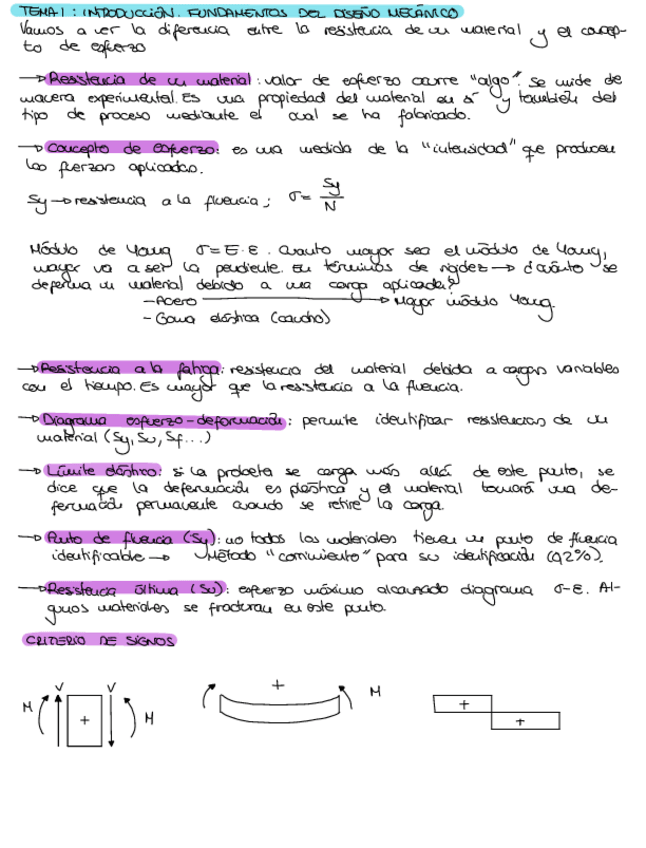 TEMA 1: INTRODUCCIÓN. FUNDAMENTOS DEL DISEÑO MECÁNICO
Vamos a ver la diferencia entre la resistencia de un material y el concep-
to de esfuerzo
→ Resistencia de un material: valor de esfuerzo ocurre "algo". Se mide de
manera experimental. Es una propiedad del material en sí y también del
tipo de proceso mediante el cual se ha fabricado.
→ Concepto de esfuerzo: es una medida de la "intensidad" que producen
las fuerzas aplicadas.
Sy → resistencia a la fluencia; σ = Sy/N
Módulo de Young σ = E·ε. Cuanto mayor sea el módulo de Young,
mayor va a ser la pendiente. En términos de rigidez → ¿cuánto se
deforma un material debido a una carga aplicada?
- Acero → Mayor módulo Young.
- Goma elástica (caucho)
→ Resistencia a la fatiga: resistencia del material debida a cargas variables
con el tiempo. Es mayor que la resistencia a la fluencia.
→ Diagrama esfuerzo-deformación: permite identificar resistencias de un
material (Sy, Su, Sf...)
→ Límite elástico: si la probeta se carga más allá de este punto, se
dice que la deformación es plástica y el material tomará una de-
formación permanente cuando se retire la carga.
→ Punto de fluencia (Sy): no todos los materiales tienen un punto de fluencia
identificable → Método "corrimiento" para su identificación (0,2%).
→ Resistencia última (Su): esfuerzo máximo alcanzado diagrama σ-ε. Al-
gunos materiales se fracturan en este punto.
CRITERIO DE SIGNOS
M V + V M
+ M
+ +